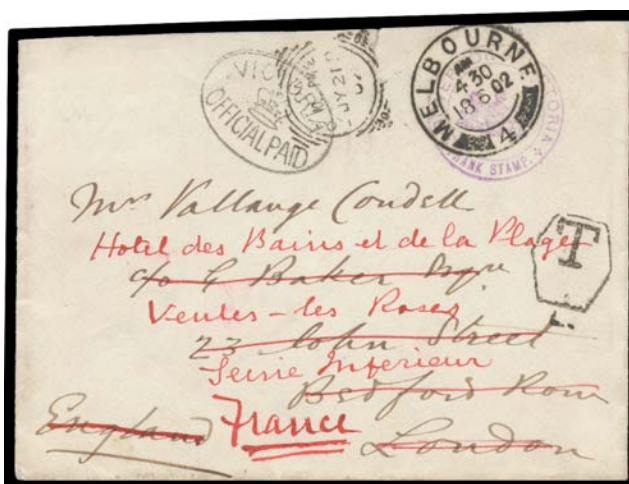 VICTORIA
OFFICIAL PAID
JY 21
02
MELBOURNE
AM
4.30
18 6 02
14
VICTORIA
FRANK STAMP
Mrs Vallange Condell
Hotel des Bains et de la Plage
c/o G Baker Esqre
Veules-les Roses
23 John Street
Seine Inferieur
Bedford Row
England France London
T